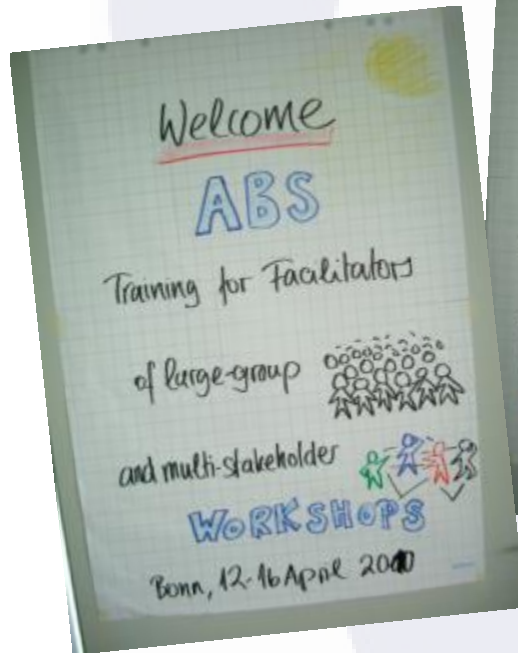 Welcome
ABS
Training for Facilitators
of large-group
and multi-stakeholder
WORKSHOPS
Bonn, 12-16 April 2010